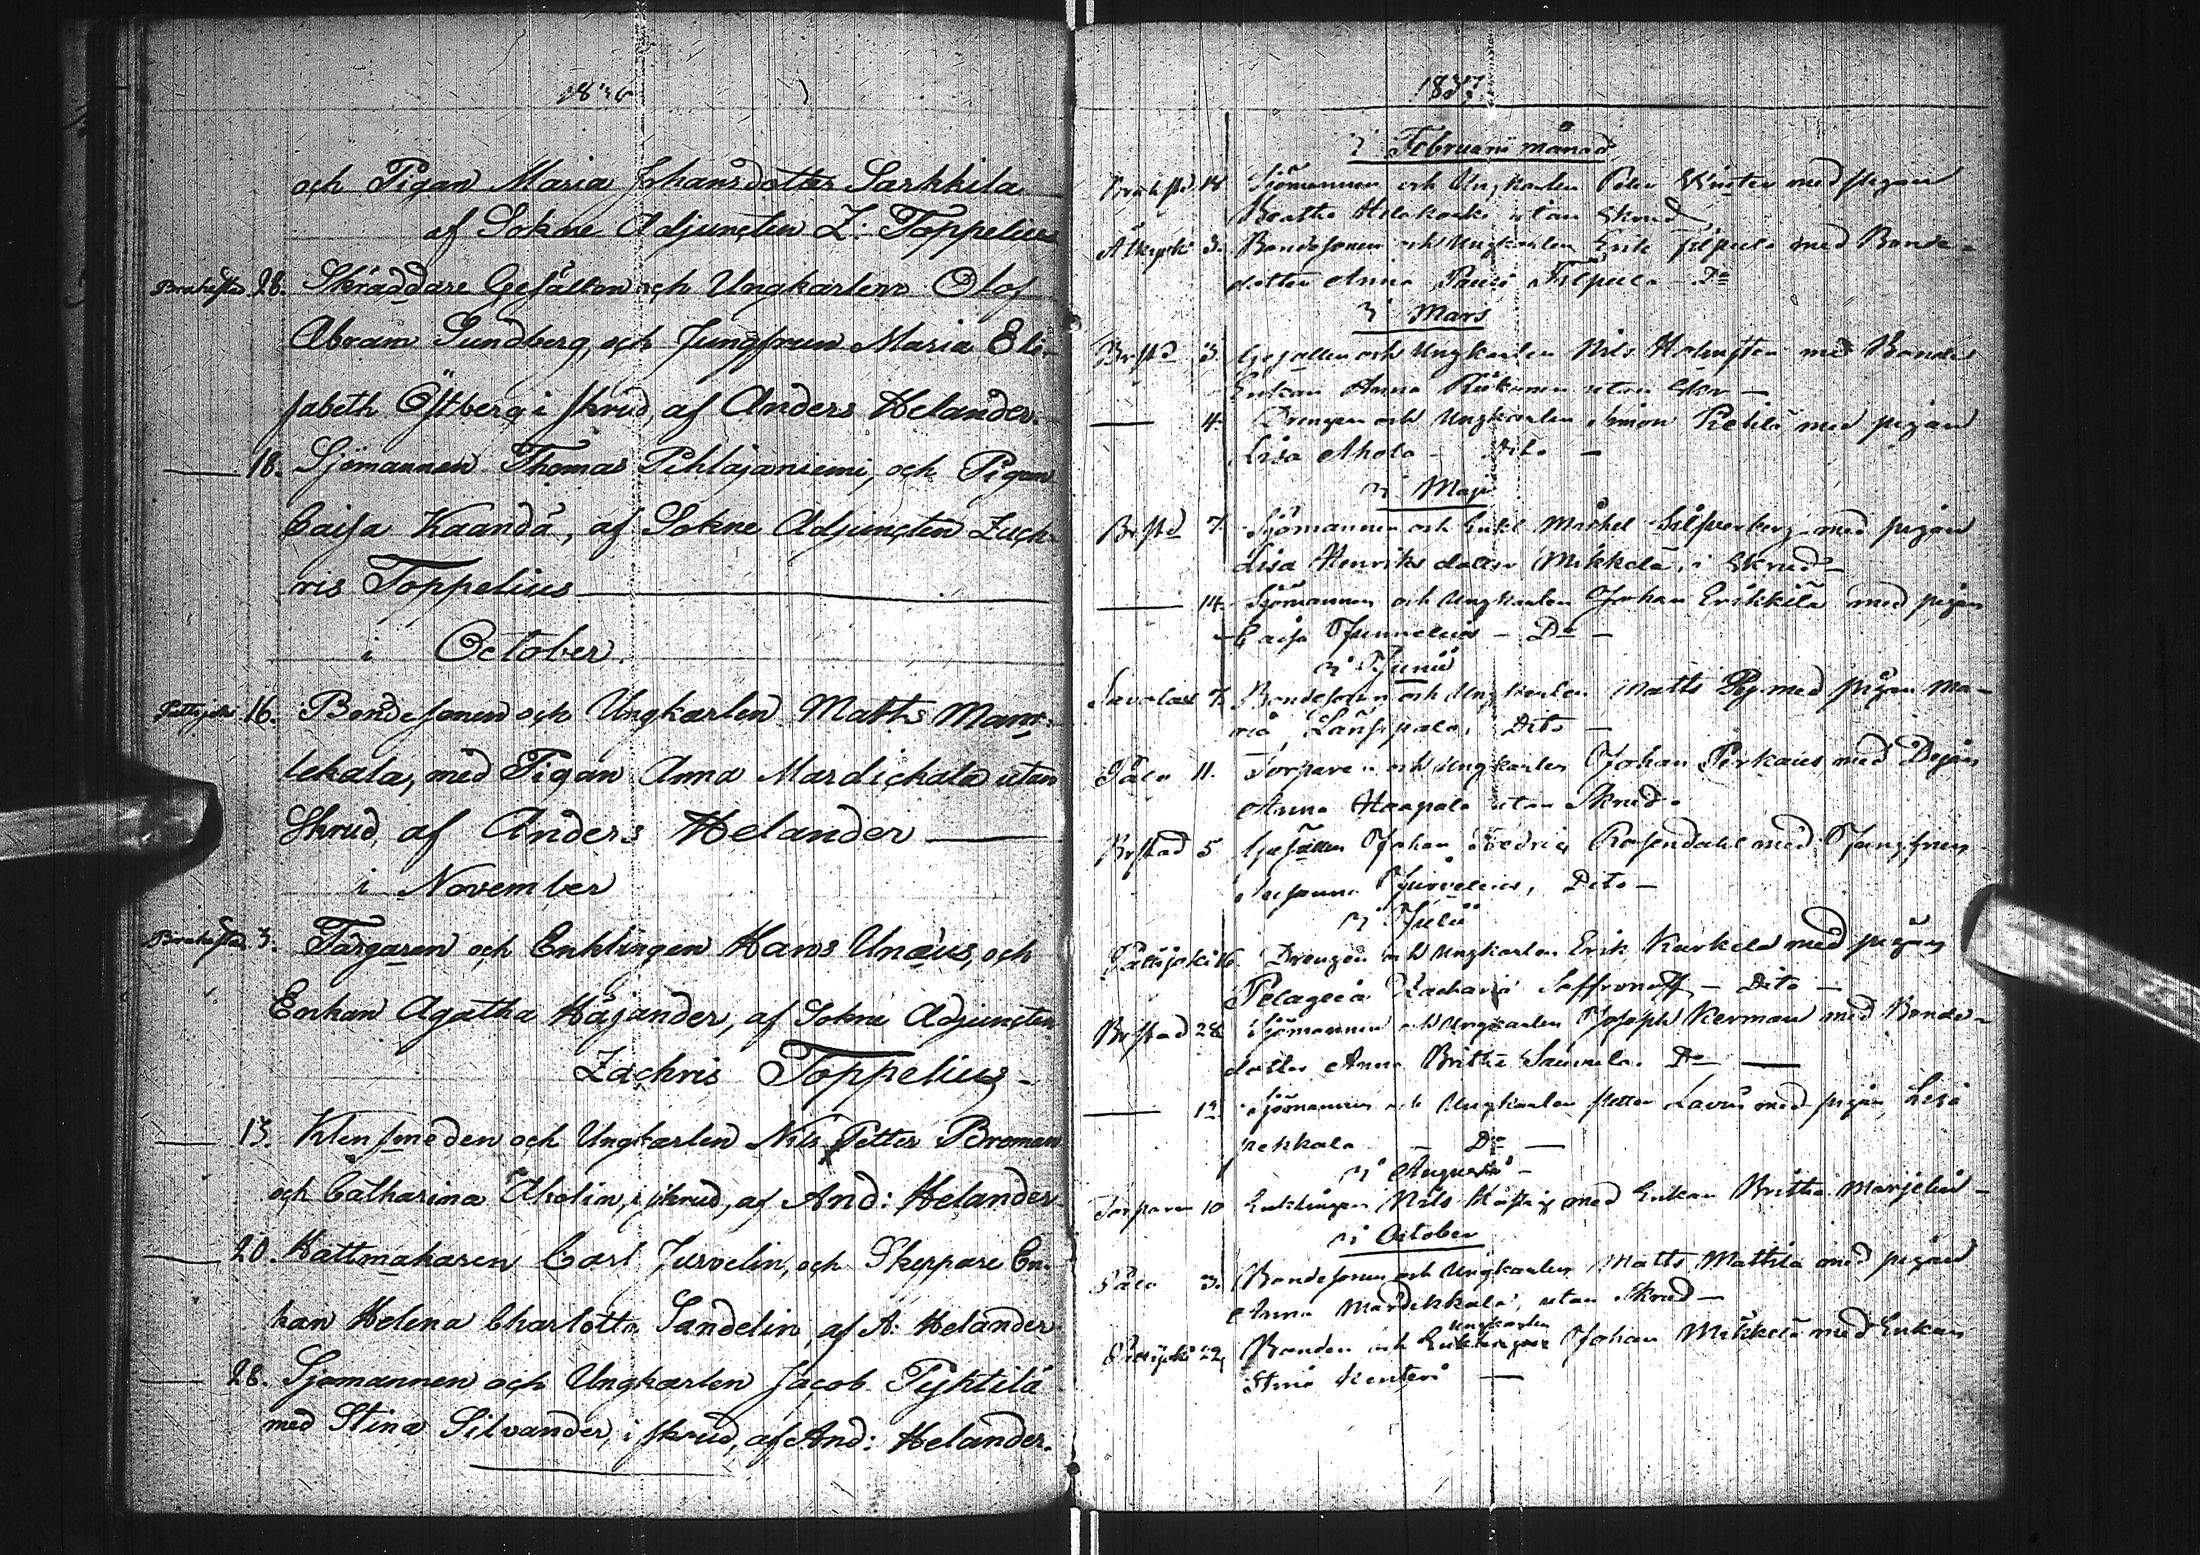 1836
och Pigan Maria Johansdotter Sarkkila
af Sokne Adjuncten Z: Toppelius
Brahesta 28. Skräddare Gesällen och Ungkarlen Olof
Abram Sundberg, och Jungfrun Maria Eli-
sabeth Östberg i skrud, af Anders Helander.
18. Sjömannen Thomas Pihlajaniemi, och Pigan
Caisa Kaanda, af Sokne Adjuncten Zach-
ris Toppelius
i October
Pattijoki 16. Bondesonen och Ungkarlen Matts Mant-
lekala, med Pigan Anna Mardickala utan
Skrud, af Anders Helander
i November
Brahesta 3. Färgaren och Enklingen Hans Unæus, och
Enkan Agatha Häjander, af Sokne Adjuncten
Zachris Toppelius
13. Klensmeden och Ungkarlen Nils Petter Broman
och Catharina Aholin, i skrud, af And: Helander
20. Hattmakaren Carl Jurvelin, och Skeppare En-
kan Helena Charlotta Sandelin, af A: Helander
28. Sjömannen och Ungkarlen Jacob Pyktilä
med Stina Silvander, i skrud, af And: Helander.
1837
i Februarii månad
18 Sjömannen och Ungkarlen Peter med pigan
Beatha utan Skrud
3. Bondesonen och Ungkarlen Erik Filpula med Bonde-
dotter Anna Filpula Do
i Mars
Brstd 3. Gesällen och Ungkarlen Nils Holmsten med Bonde
Enkan Anna utan Skr
4. Drengen och Ungkarlen Simon med pigan
Lisa Ahola Dito
i Maji
Brstd 7. Sjömannen och Enkl Michel Silfverberg med pigan
Lisa Henriks dotter Mikkela, i Skrud
14. Sjömannen och Ungkarlen Johan Erikkilä med pigan
Caisa Do
i Junii
Savolax 7. Bondesonen och Ungkarlen Matts med pigan Ma-
ria Dito
11. Torparen och Ungkarlen Johan med Pigan
Anna Haapala utan Skrud.
Brstad 5 Gesällen Johan Fredric Rosendahl med Jungfrun
Susanna Dito
i Julii
Pattijoki 16. Drengen och Ungkarlen Erik Kurkela med pigan
Pelageia Zacharia Saffronoff Dito
Brstad 28 Sjömannen och Ungkarlen Joseph Kerman med Bonde-
dotter Anna Britha Do
12 Sjömannen och Ungkarlen Petter med pigan Lisa
pekkala Do
i Augusti
10 Enklingen Nils med Enkan Britha
i October
3. Bondesonen och Ungkarlen Matts Mattila med pigan
Anna Mardikkala, utan Skrud
Ungkarlen
Pattijoki 22, Bonden och Enklingen Johan Mikkela med Enkan
Stina